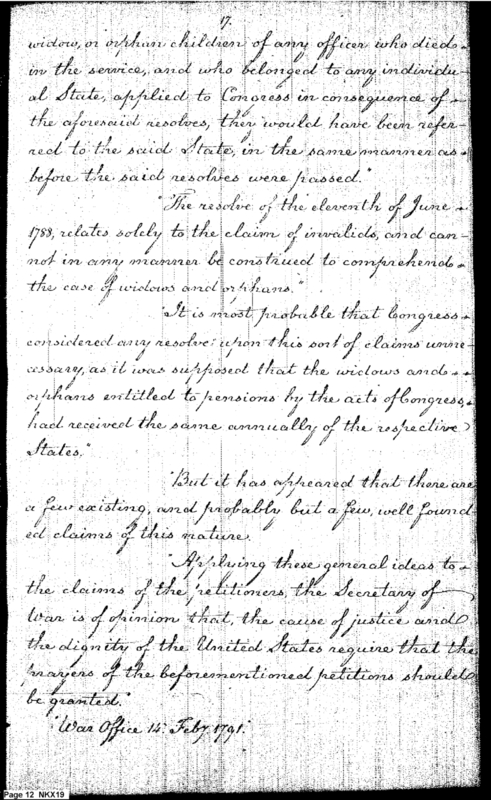 17.
widow, or orphan children of any officer who died
in the service, and who belonged to any individu-
al State, applied to Congress in consequence of
the aforesaid resolves, they would have been refer-
red to the said State, in the same manner as
before the said resolves were passed."
"The resolve of the eleventh of June
1788, relates solely to the claim of invalids, and can-
not in any manner be construed to comprehend
the case of widows and orphans."
"It is most probable that Congress
considered any resolve upon this sort of claims unne-
cessary, as it was supposed that the widows and
orphans entitled to pensions by the acts of Congress,
had received the same annually of the respective
States."
"But it has appeared that there are
a few existing, and probably but a few, well found
ed claims of this nature.
"Applying these general ideas to
the claims of the petitioners, the Secretary of
War is of opinion that, the cause of justice and
the dignity of the United States require that the
prayers of the beforementioned petitions should
be granted."
"War Office 14: Feby 1791."
Page 12 NKX19